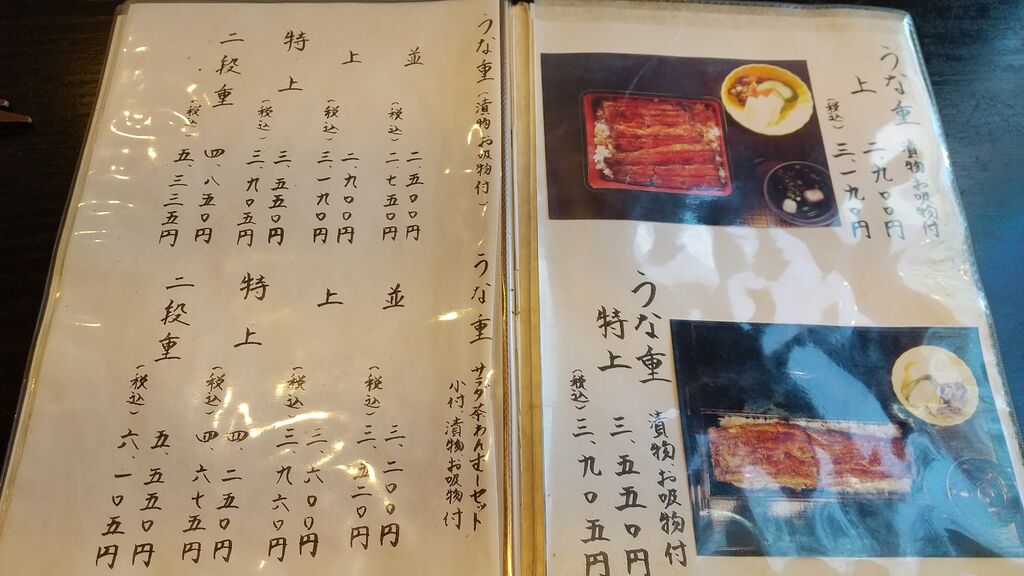 うな重 漬物 お吸物付
上 二、九〇〇円
(税込) 三、一九〇円
うな重 漬物 お吸物付
特上 三、五五〇円
(税込) 三、九〇五円
うな重 (漬物 お吸物付)
並 二、五〇〇円
(税込) 二、七五〇円
上 二、九〇〇円
(税込) 三、一九〇円
特上 三、五五〇円
(税込) 三、九〇五円
二段重 四、八五〇円
(税込) 五、三三五円
うな重 サラダ 茶わんむしセット
小付 漬物 お吸物付
並 三、二〇〇円
(税込) 三、五二〇円
上 三、六〇〇円
(税込) 三、九六〇円
特上 四、二五〇円
(税込) 四、六七五円
二段重 五、五五〇円
(税込) 六、一〇五円